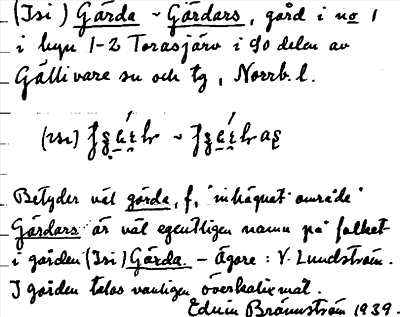 (Isi) Gärda ~ Gärdars, gård i no 1
i byn 1-2 Torasjärv i sö delen av
Gällivare sn och tg, Norrb. l.
(isi)
Betyder väl gärda, f, 'inhägnat område'
Gärdars är väl egentligen namn på folket
i gården (Isi) Gärda. – Ägare: V. Lundström.
I gården talas vanligen överkalixmål.
Edvin Brännström 1939.